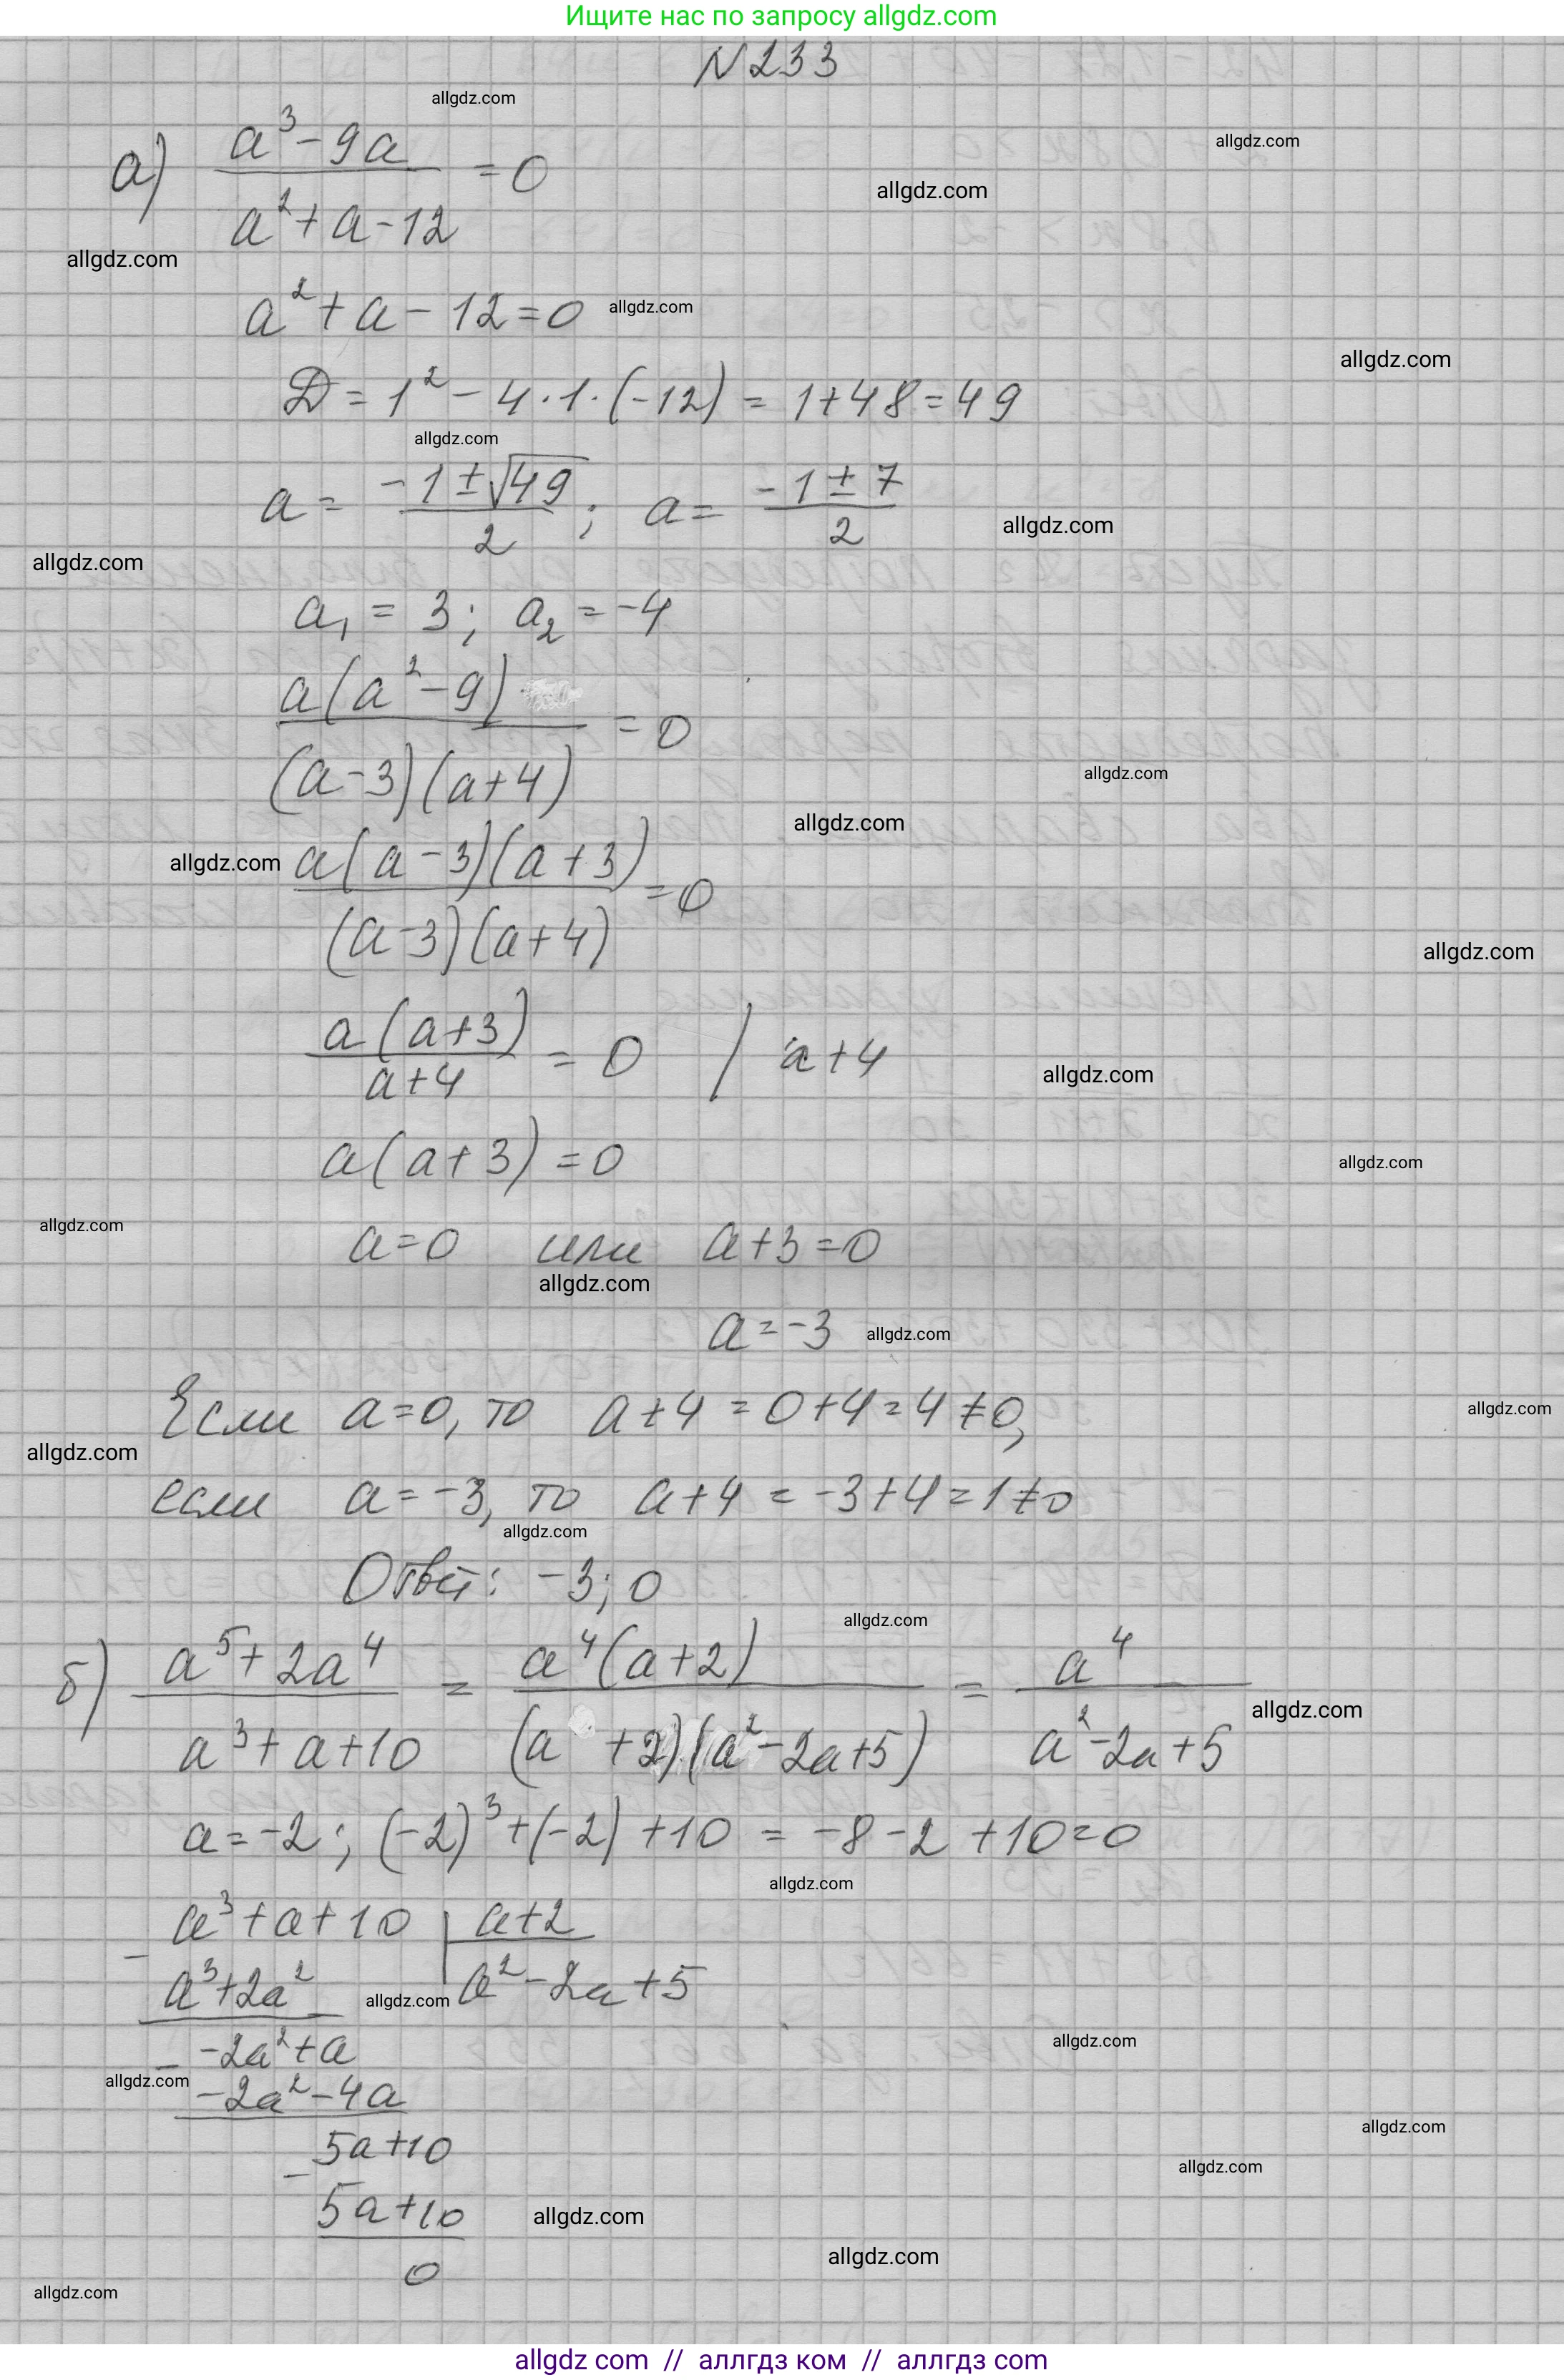 Ищите нас по запросу allgdz.com
N 233
allgdz.com
а) (a³ - 9a)/(a² + a - 12) = 0
allgdz.com
allgdz.com
allgdz.com
a² + a - 12 = 0
allgdz.com
allgdz.com
D = 1² - 4 · 1 · (-12) = 1 + 48 = 49
allgdz.com
a = (-1 ± √49)/2 ; a = (-1 ± 7)/2
allgdz.com
allgdz.com
a₁ = 3 ; a₂ = -4
a(a² - 9)/((a - 3)(a + 4)) = 0
allgdz.com
allgdz.com
allgdz.com
a(a - 3)(a + 3)/((a - 3)(a + 4)) = 0
allgdz.com
a(a + 3)/(a + 4) = 0 / a + 4
allgdz.com
a(a + 3) = 0
allgdz.com
allgdz.com
a = 0 или a + 3 = 0
allgdz.com
a = -3
allgdz.com
Если a = 0, то a + 4 = 0 + 4 = 4 ≠ 0,
allgdz.com
allgdz.com
если a = -3, то a + 4 = -3 + 4 = 1 ≠ 0
allgdz.com
Ответ: -3; 0
allgdz.com
б) (a⁵ + 2a⁴)/(a³ + a + 10) = a⁴(a + 2)/((a + 2)(a² - 2a + 5)) = a⁴/(a² - 2a + 5)
allgdz.com
a = -2 ; (-2)³ + (-2) + 10 = -8 - 2 + 10 = 0
allgdz.com
- a³ + a + 10 | a + 2
a³ + 2a² a² - 2a + 5
allgdz.com
- -2a² + a
allgdz.com
allgdz.com
-2a² - 4a
allgdz.com
- 5a + 10
allgdz.com
5a + 10
allgdz.com
allgdz.com
0
allgdz.com
allgdz com // аллгдз ком // аллгдз com